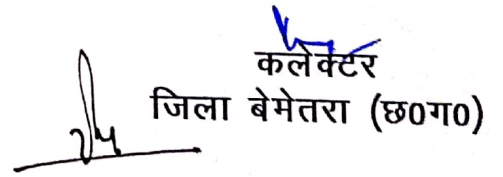 कलेक्टर
जिला बेमेतरा (छ0ग0)